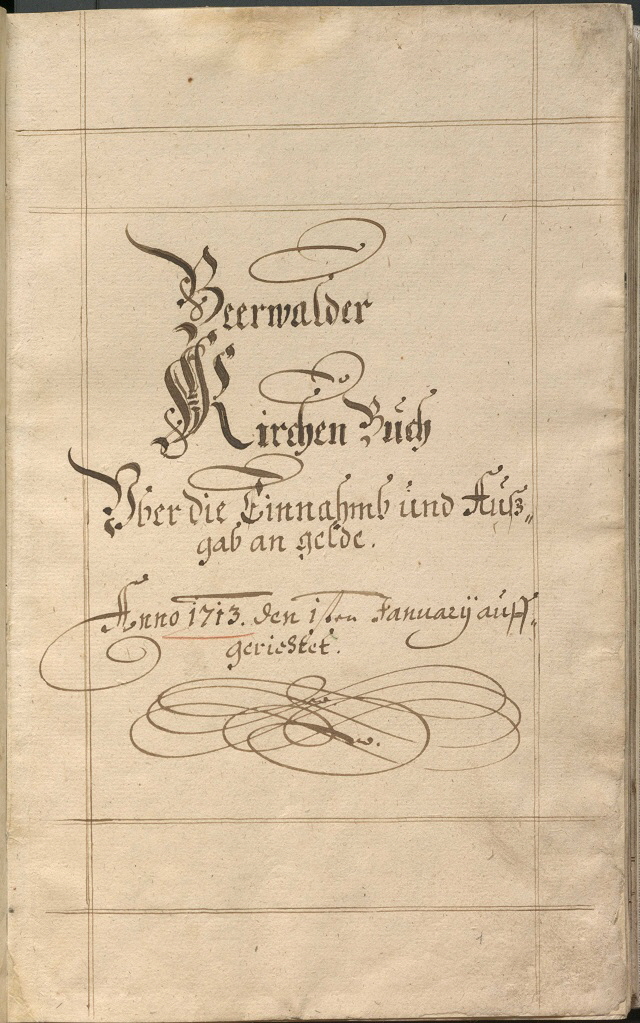 Beerwalder
Kirchen Buch
Vber die Einnahmb und Auß„
gab an gelde.
Anno 1713. den 1sten January auff„
gerichtet.